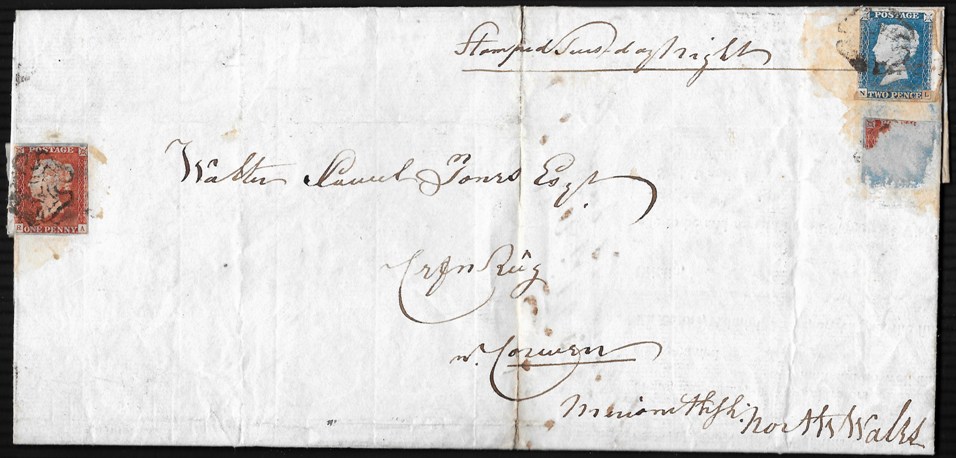 Stamped Tuesday Night
POSTAGE
TWO PENCE
N L
Walter Jones Esqr
POSTAGE
ONE PENNY
A
Crgn Rûg
nr. Corwen
Merionethsh.
North Wales